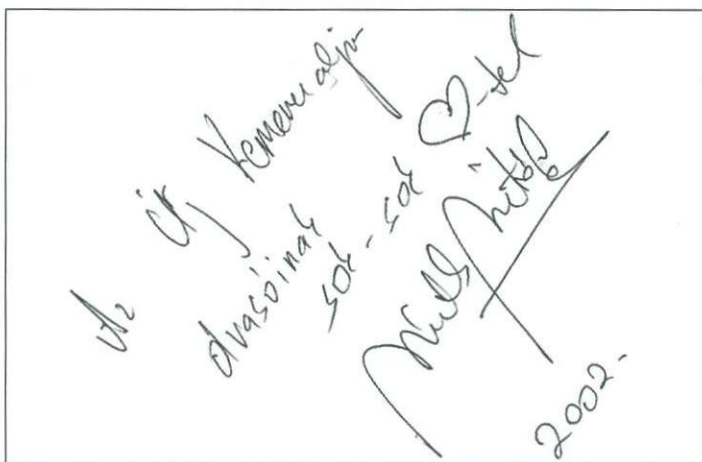 Az Új Kemenesalja
olvasóinak
sok-sok ♡-tel
2002.